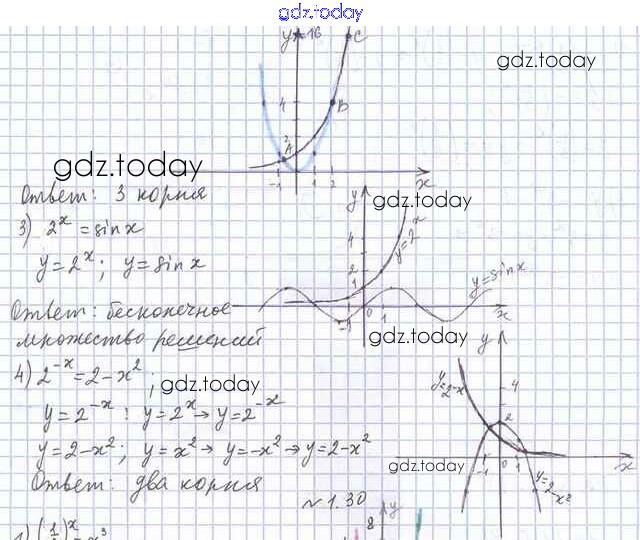 gdz.today
y=16
C
gdz.today
4
B
2
A
gdz.today
-1 1 2 x
Ответ: 3 корня
y
gdz.today
3) 2^x = sin x
4
y=2^x
y=2^x; y=sin x
2
1
y=sin x
Ответ: бесконечное
-1 0 1 x
множество решений
gdz.today
y
4) 2^-x = 2-x^2;
gdz.today
y=2^-x
4
2
y=2^-x : y=2^x → y=2^-x
y=2-x^2; y=x^2 → y=-x^2 → y=2-x^2
gdz.today
-1 0 1 x
y=2-x^2
Ответ: два корня
№1.30
8 y
1) (1/2)^x = x^3